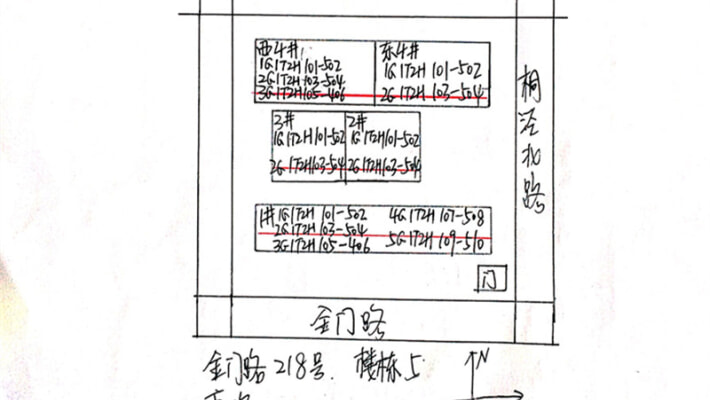 西4#
1G1T2H 101-502
2G1T2H 103-504
3G1T2H 105-406
东4#
1G1T2H 101-502
2G1T2H 103-504
3#
1G1T2H 101-502
2G1T2H 103-504
2#
1G1T2H 101-502
2G1T2H 103-504
1# 1G1T2H 101-502
2G1T2H 103-504
3G1T2H 105-406
4G1T2H 107-508
5G1T2H 109-510
门
桐泾北路
金门路
金门路218号. 楼栋5
N